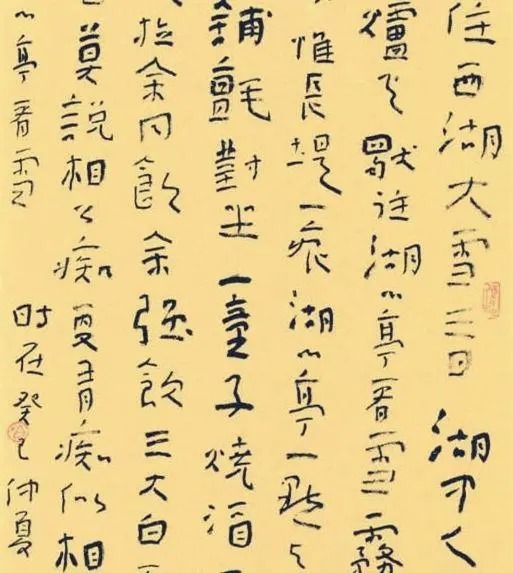 住西湖大雪三日湖中人
爐火獨往湖心亭看雪霧
惟長堤一痕湖心亭一點與
鋪氈對坐一童子燒酒
拉余同飲余強飲三大白
莫說相公痴更有痴似相
心亭看雪 时在癸巳仲夏